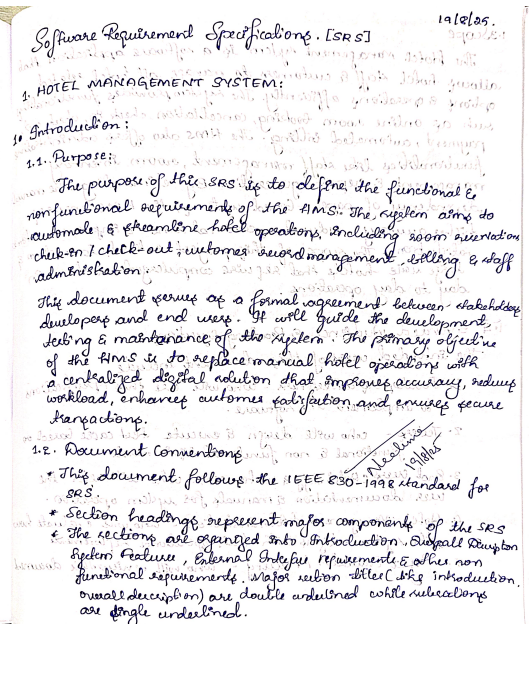 19/8/25.
Software Requirement Specifications. [SRS]
1. HOTEL MANAGEMENT SYSTEM:
1. Introduction:
1.1. Purpose:
The purpose of this SRS is to define the functional &
nonfunctional requirements of the HMS. The system aims to
automate & streamline hotel operations, including room reservations
check-in / check-out, customer record management, billing & staff
administration.
This document serves as a formal agreement between stakeholders
developers and end users. It will guide the development,
testing & maintanance of the system. The primary objective
of the HMS is to replace manual hotel operations with
a centralized digital solution that improves accuracy, reduces
workload, enhances customer satisfaction and ensures secure
transactions.
1.2. Document Conventions
19/8/25
* This document follows the IEEE 830-1998 standard for
SRS.
* Section headings represent major components of the SRS
* The sections are organized into Introduction, Overall
System Features, External Interface requirements & other non
functional requirements. Major section titles (like introduction,
overall description) are double underlined while subsections
are single underlined.